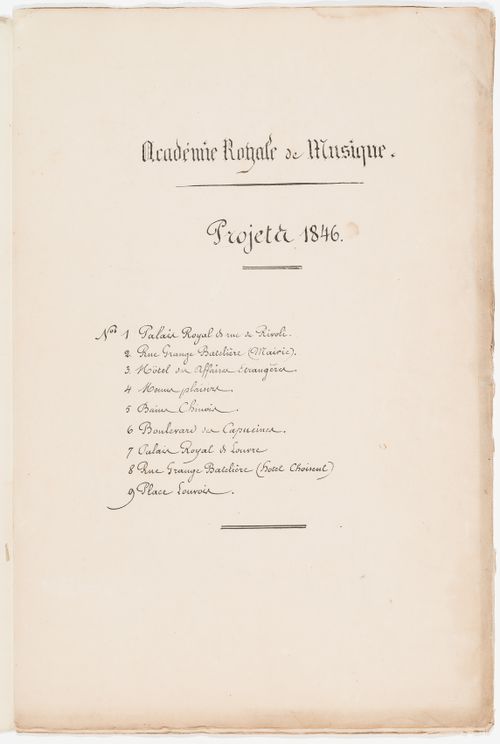 Académie Royale de Musique.
Projets 1846.
Nos 1 Palais Royal & rue de Rivoli.
2 Rue Grange Batelière (Mairie).
3 Hôtel des Affaires étrangères
4 Menus plaisirs.
5 Bains Chinois.
6 Boulevard des Capucines.
7 Palais Royal & Louvre
8 Rue Grange Batelière (hotel Choiseul)
9 Place Louvois.